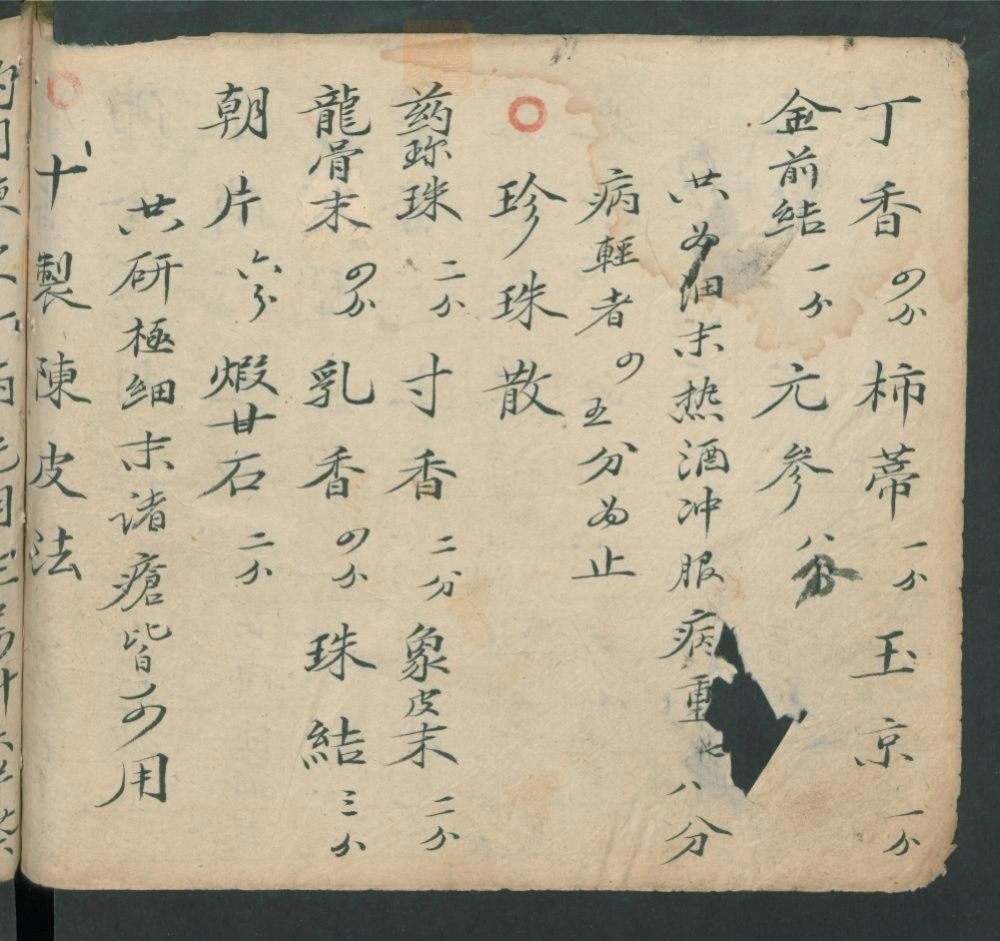 丁香 四分 柿蒂 一分 玉京 一分
金前結 一分 元參 八分
共為細末热酒冲服病重七八分
病輕者四五分為止
珍珠散
药珎珠 二分 寸香 二分 象皮末 二分
龍骨末 四分 乳香 四分 珠結 三分
朝片 六分 煆甘石 二分
共研極細末諸瘡皆可用
十製陳皮法